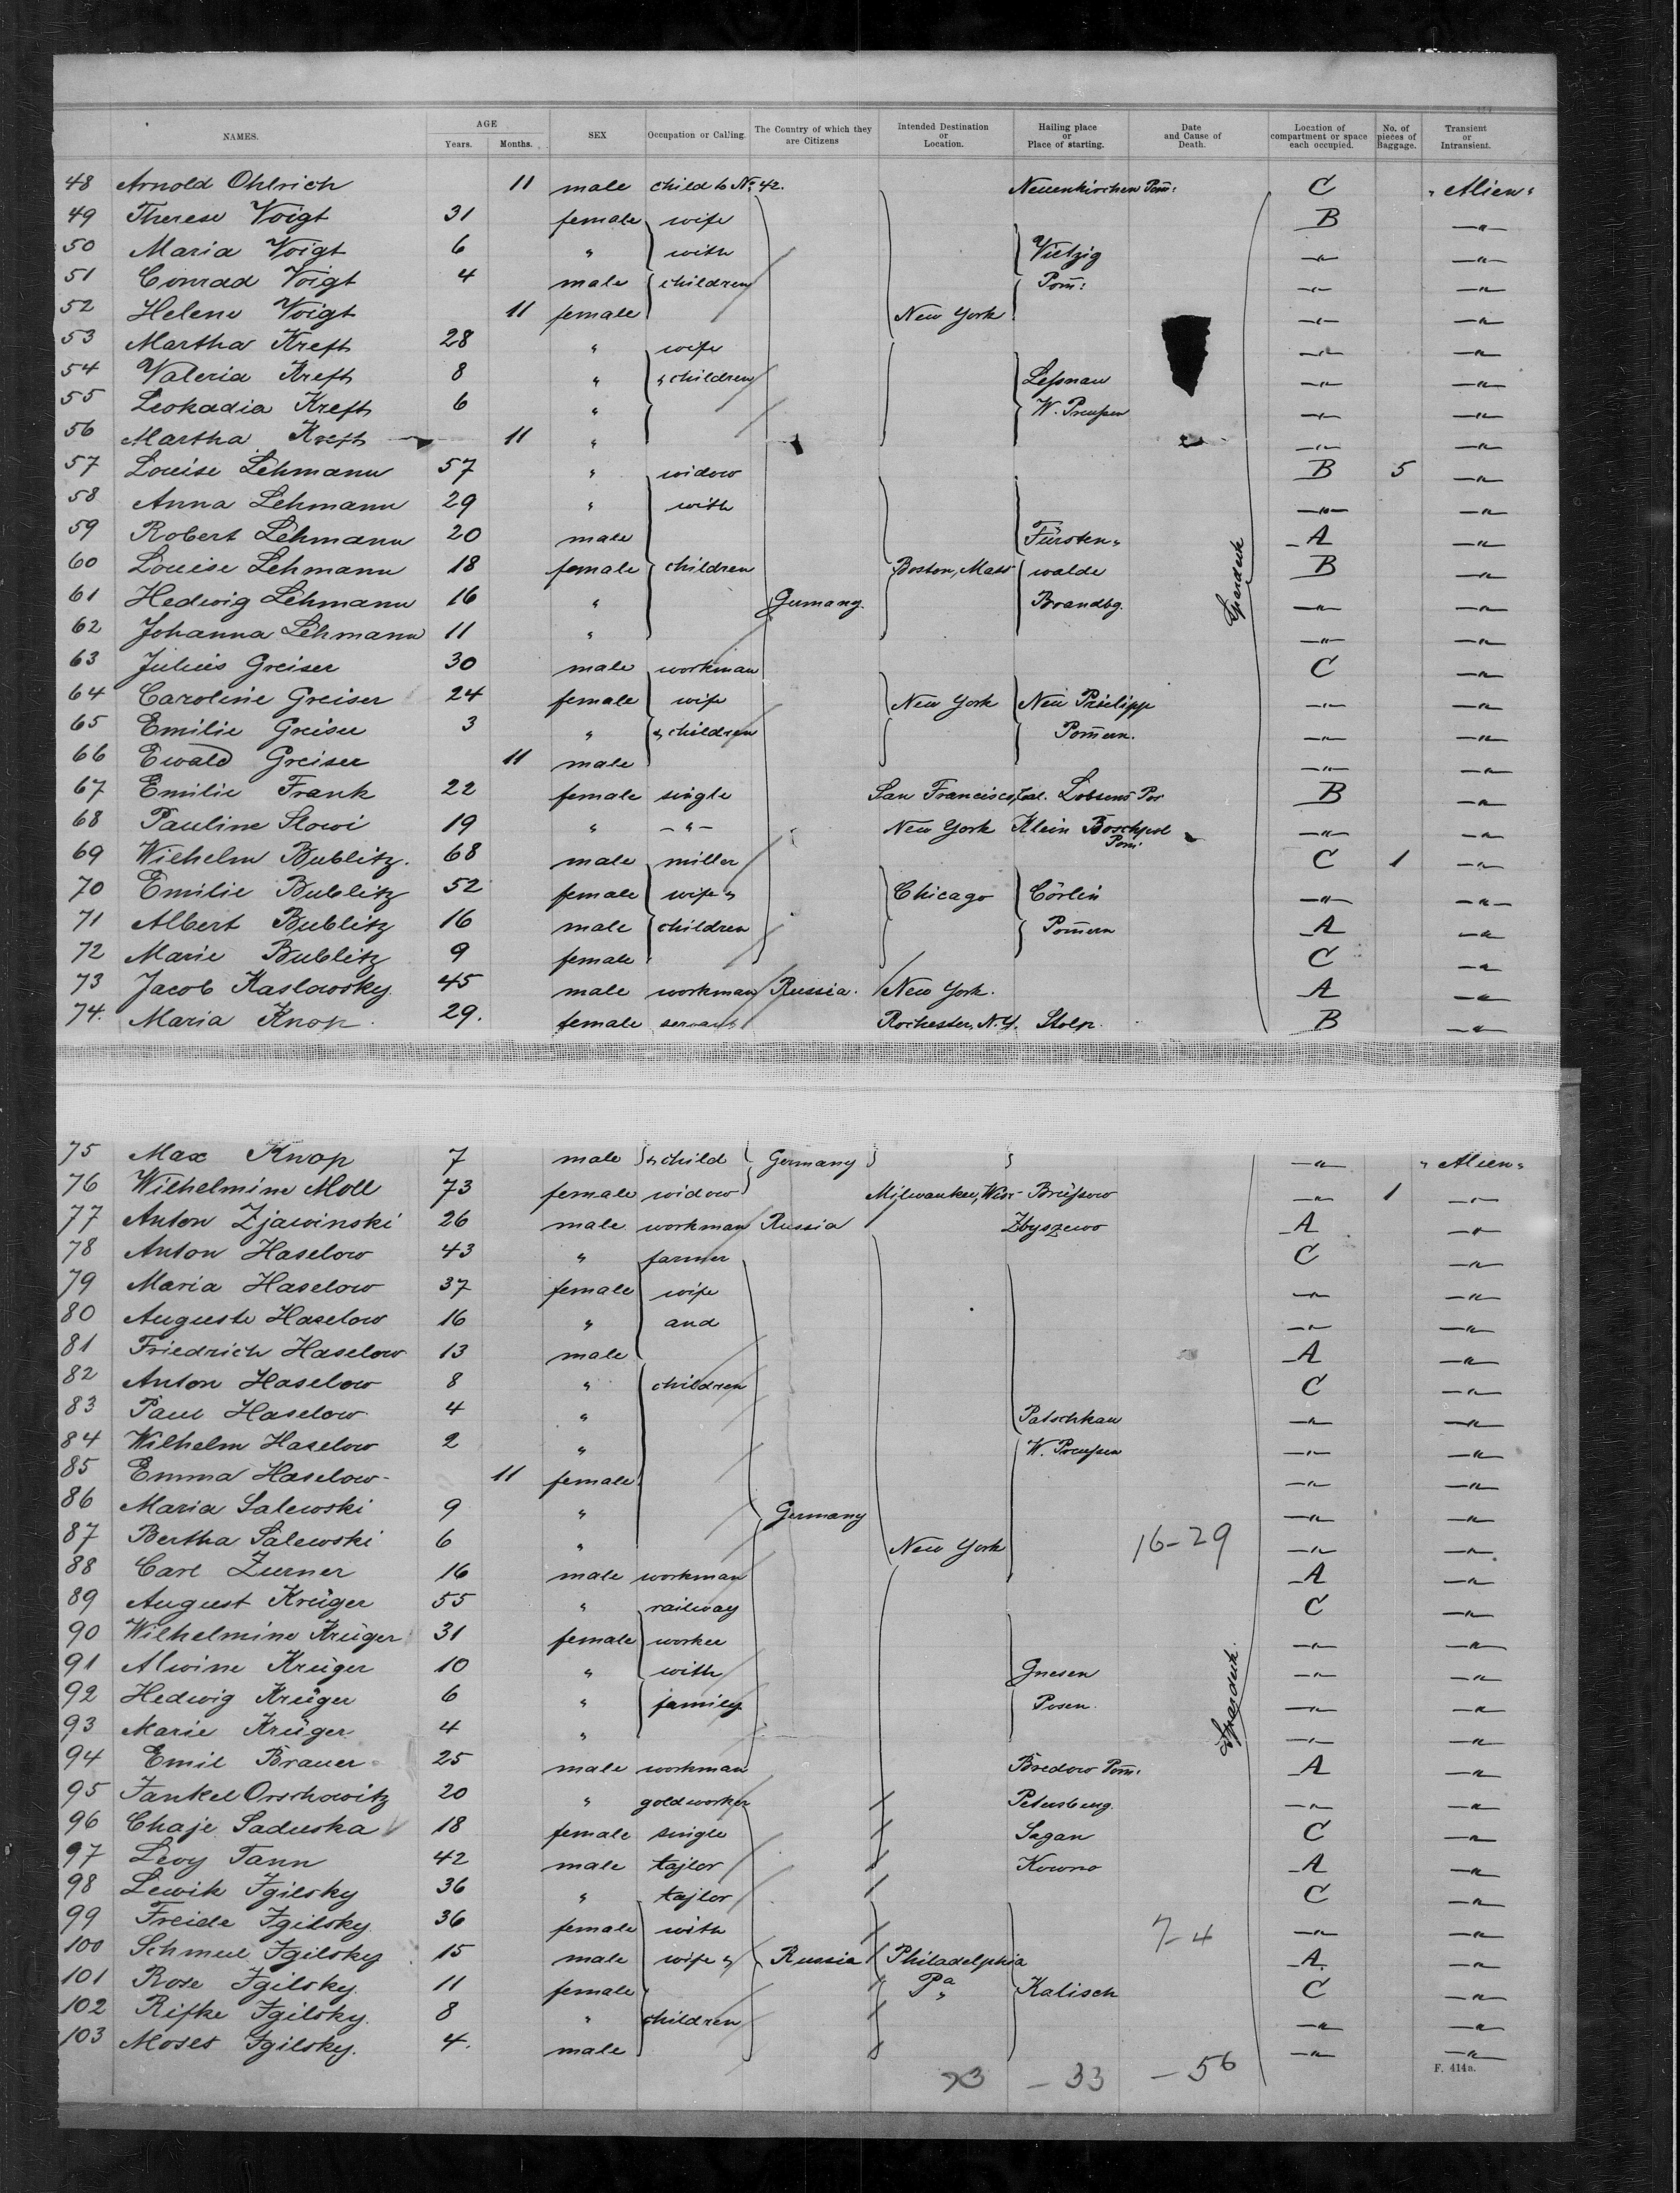 NAMES. AGE Years. Months. SEX Occupation or Calling. The Country of which they are Citizens Intended Destination or Location. Hailing place or Place of starting. Date and Cause of Death. Location of compartment or space each occupied. No. of pieces of Baggage. Transient or Intransient.
48 Arnold Ohlrich 11 male child to No. 42. Neuenkirchen Pom: C "Alien"
49 Therese Voigt 31 female wife B —"—
50 Maria Voigt 6 " with Vietzig —"— —"—
51 Conrad Voigt 4 male children Pom: —"— —"—
52 Helene Voigt 11 female New York —"— —"—
53 Martha Kreft 28 " wife —"— —"—
54 Valeria Kreft 8 " " children Leßnau —"— —"—
55 Leokadia Kreft 6 " W. Preußen —"— —"—
56 Martha Kreft 11 " —"— —"—
57 Louise Lehmann 57 " widow B 5 —"—
58 Anna Lehmann 29 " with —"— —"—
59 Robert Lehmann 20 male Fürsten- A —"—
60 Louise Lehmann 18 female children Boston, Mass walde B —"—
61 Hedwig Lehmann 16 " Germany. Brandbg. Spardeck —"— —"—
62 Johanna Lehmann 11 " —"— —"—
63 Julius Greiser 30 male workman C —"—
64 Caroline Greiser 24 female wife New York Neu Prielipp —"— —"—
65 Emilie Greiser 3 " " children Pomern. —"— —"—
66 Ewald Greiser 11 male —"— —"—
67 Emilie Frank 22 female single San Francisco, Cal. Lobsens Pos B —"—
68 Pauline Slowi 19 " —"— New York Klein Boschpol Pom —"— —"—
69 Wilhelm Bublitz. 68 male miller C 1 —"—
70 Emilie Bublitz 52 female wife " Chicago Cörlin —"— —"—
71 Albert Bublitz 16 male children Pomern A —"—
72 Marie Bublitz 9 female C —"—
73 Jacob Kaslowsky. 45 male workman Russia. New York. A —"—
74. Maria Knop. 29. female servant Rochester, N.Y. Stolp. B —"—
75 Max Knop 7 male " child Germany —"— "Alien"
76 Wilhelmine Moll 73 female widow Milwaukee, Wisc. Brüssow —"— 1 —"—
77 Anton Zjawinski 26 male workman Russia Zbyszewo A —"—
78 Anton Haselow 43 " farmer C —"—
79 Maria Haselow 37 female wife —"— —"—
80 Auguste Haselow 16 " and —"— —"—
81 Friedrich Haselow 13 male A —"—
82 Anton Haselow 8 " children C —"—
83 Paul Haselow 4 " Patschkau —"— —"—
84 Wilhelm Haselow 2 " W. Preußen —"— —"—
85 Emma Haselow 11 female —"— —"—
86 Maria Salewski 9 " Germany —"— —"—
87 Bertha Salewski 6 " New York 16-29 —"— —"—
88 Carl Zurner 16 male workman A —"—
89 August Krüger 55 " railway C —"—
90 Wilhelmine Krüger 31 female worker —"— —"—
91 Alwine Krüger 10 " with Gnesen —"— —"—
92 Hedwig Krüger 6 " family Posen. Spardeck. —"— —"—
93 Marie Krüger 4 " —"— —"—
94 Emil Brauer 25 male workman Bredow Pom: A —"—
95 Jankel Orschowitz 20 " goldworker Petersburg. —"— —"—
96 Chaje Saduska 18 female single Sagan C —"—
97 Levy Tann 42 male tajlor Kowno A —"—
98 Lewik Jgilsky 36 " tajlor C —"—
99 Freide Jgilsky. 36 female with 7-4 —"— —"—
100 Schmul Jgilsky 15 male wife " Russia Philadelphia A. —"—
101 Rose Jgilsky. 11 female Pa " Kalisch C —"—
102 Rifke Jgilsky. 8 " children —"— —"—
103 Moses Jgilsky. 4. male —"— —"—
F. 414a.
- 33 - 56